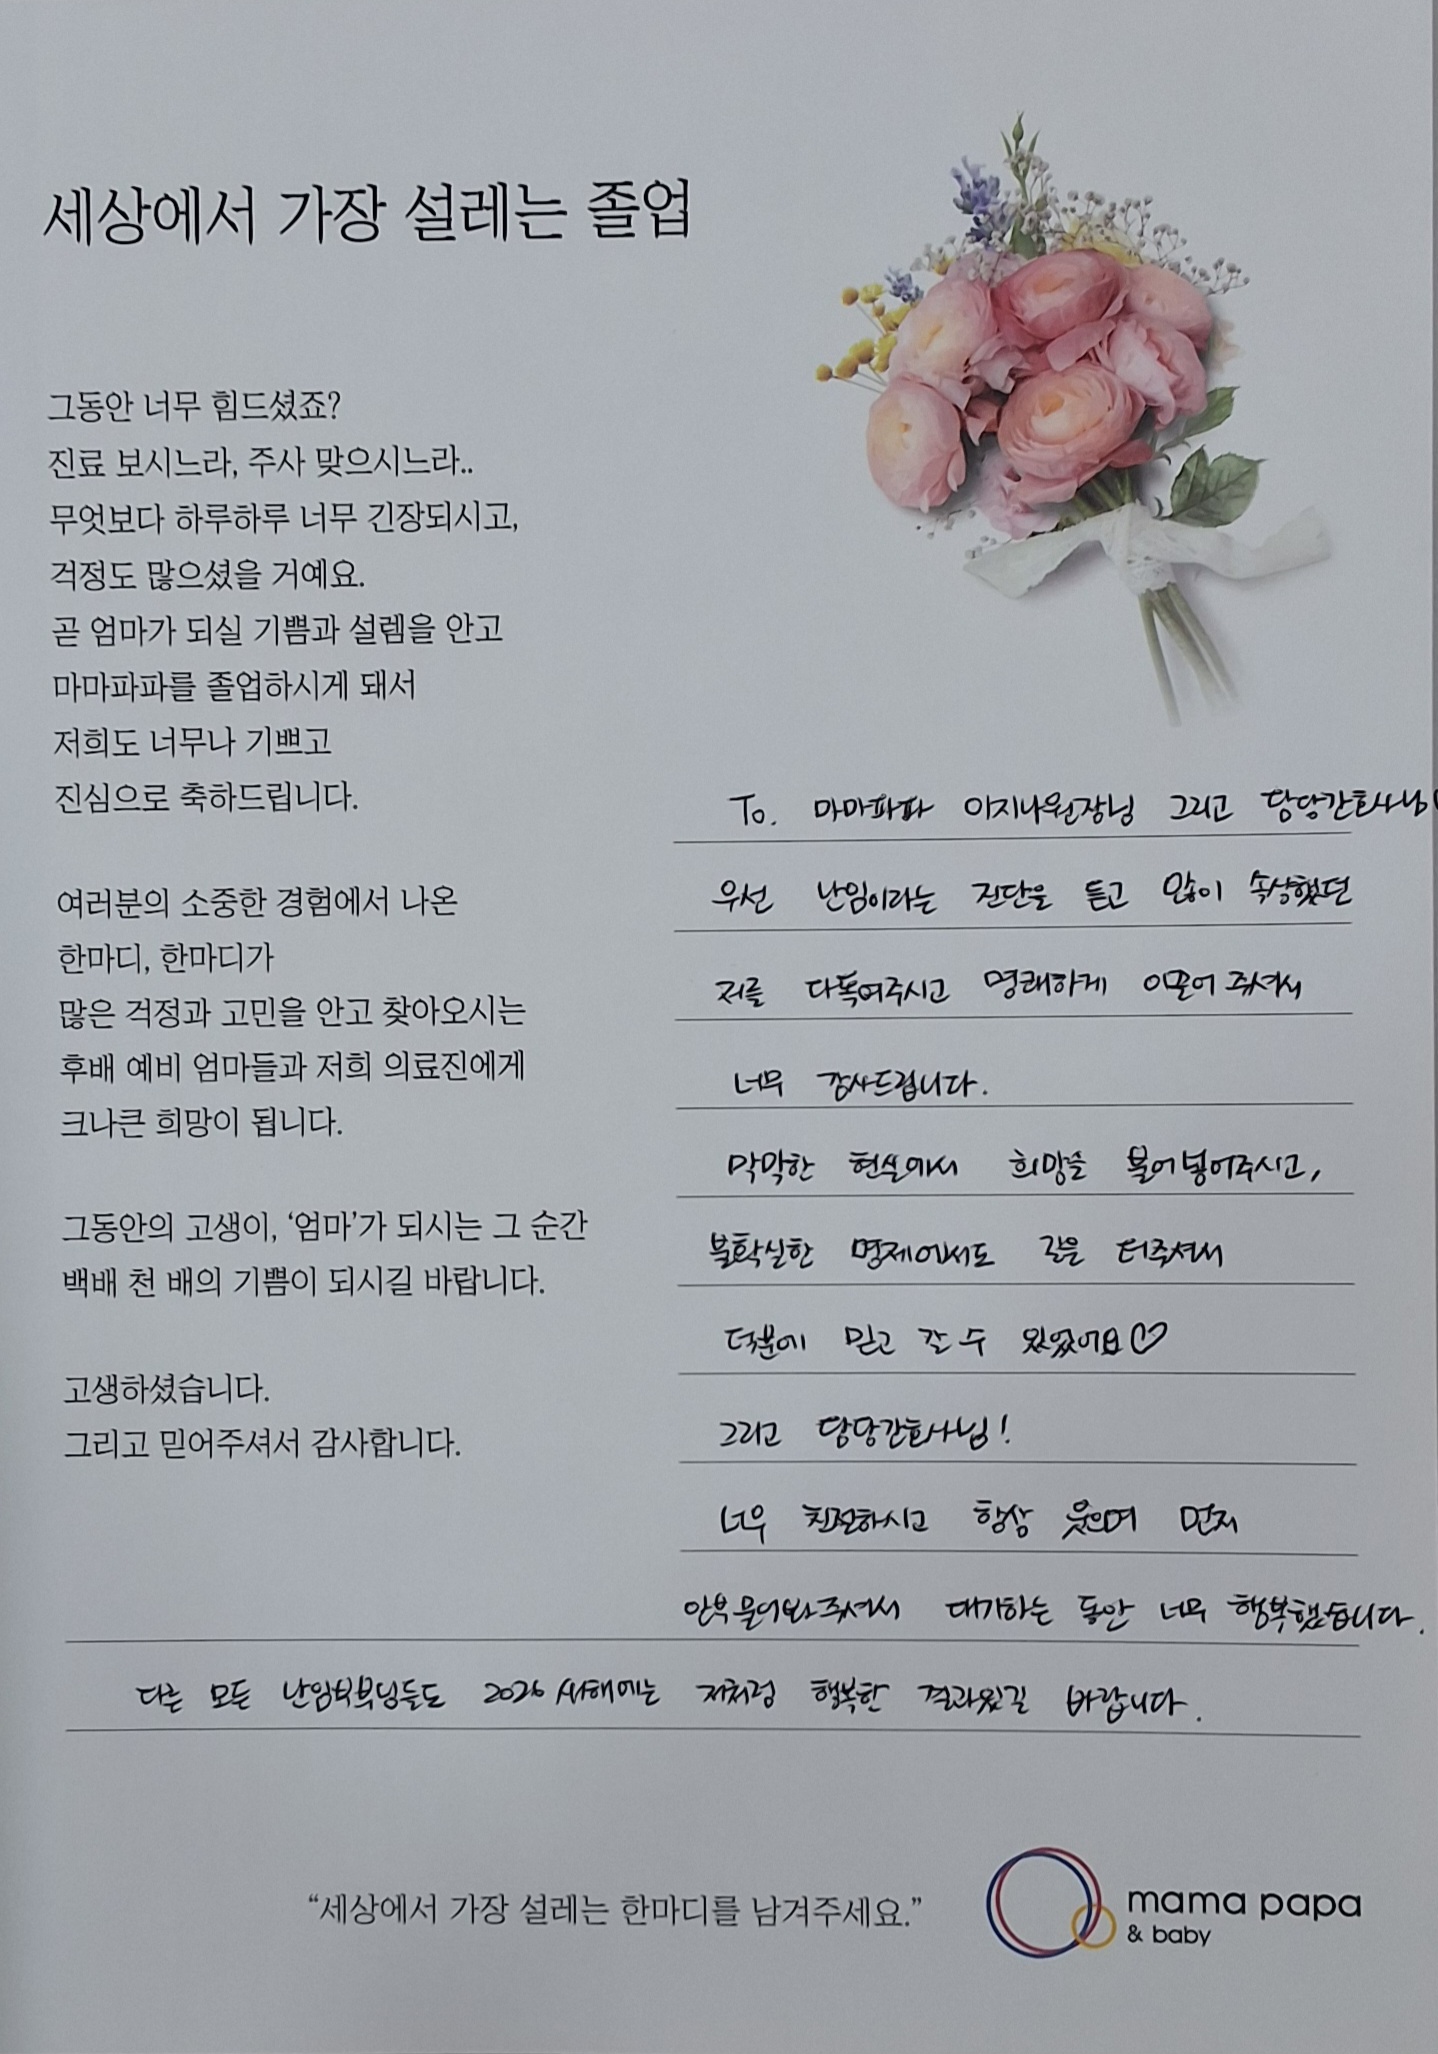 세상에서 가장 설레는 졸업
그동안 너무 힘드셨죠?
진료 보시느라, 주사 맞으시느라..
무엇보다 하루하루 너무 긴장되시고,
걱정도 많으셨을 거예요.
곧 엄마가 되실 기쁨과 설렘을 안고
마마파파를 졸업하시게 돼서
저희도 너무나 기쁘고
진심으로 축하드립니다.
여러분의 소중한 경험에서 나온
한마디, 한마디가
많은 걱정과 고민을 안고 찾아오시는
후배 예비 엄마들과 저희 의료진에게
크나큰 희망이 됩니다.
그동안의 고생이, ‘엄마’가 되시는 그 순간
백배 천 배의 기쁨이 되시길 바랍니다.
고생하셨습니다.
그리고 믿어주셔서 감사합니다.
To. 마마파파 이지나원장님 그리고 담당간호사님
우선 난임이라는 진단을 듣고 많이 속상했던
저를 다독여주시고 명쾌하게 이끌어 주셔서
너무 감사드립니다.
막막한 현실에서 희망을 불어넣어주시고,
불확실한 명제에서도 길을 터주셔서
덕분에 믿고 갈 수 있었어요♡
그리고 담당간호사님!
너무 친절하시고 항상 웃으며 먼저
안부 물어봐주셔서 대기하는 동안 너무 행복했습니다.
다른 모든 난임부부님들도 2026 새해에는 저처럼 행복한 결과있길 바랍니다.
“세상에서 가장 설레는 한마디를 남겨주세요.”
mama papa
& baby